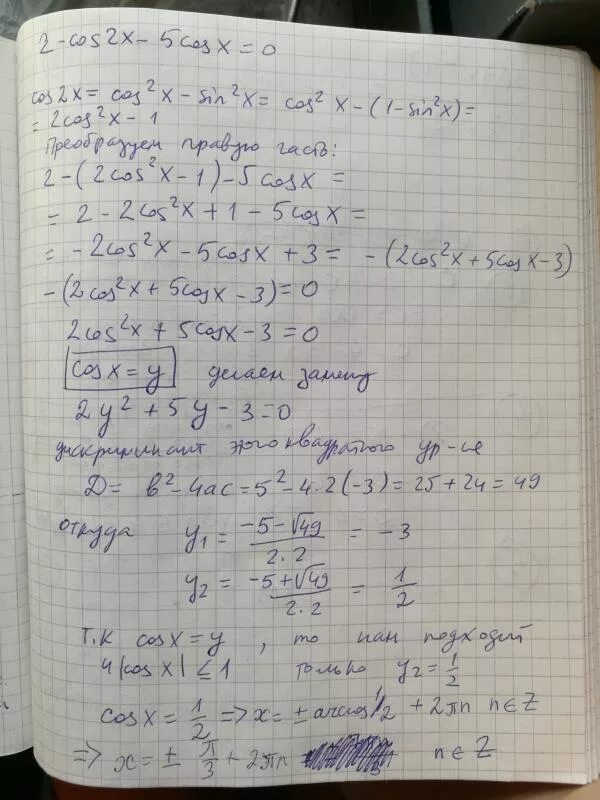 2 - cos2x - 5cosx = 0
cos2x = cos²x - sin²x = cos²x - (1 - sin²x) =
= 2cos²x - 1
Преобразуем правую часть:
2 - (2cos²x - 1) - 5cosx =
= 2 - 2cos²x + 1 - 5cosx =
= -2cos²x - 5cosx + 3 = -(2cos²x + 5cosx - 3)
-(2cos²x + 5cosx - 3) = 0
2cos²x + 5cosx - 3 = 0
cosx = y делаем замену
2y² + 5y - 3 = 0
дискриминант этого квадратного ур-ие
D = b² - 4ac = 5² - 4·2(-3) = 25 + 24 = 49
откуда y₁ = (-5 - √49)/(2·2) = -3
y₂ = (-5 + √49)/(2·2) = 1/2
т.к cosx = y, то нам подходит
и |cosx| ≤ 1 только y₂ = 1/2
cosx = 1/2 => x = ± arccos 1/2 + 2πn n∈Z
=> x = ± π/3 + 2πn n∈Z